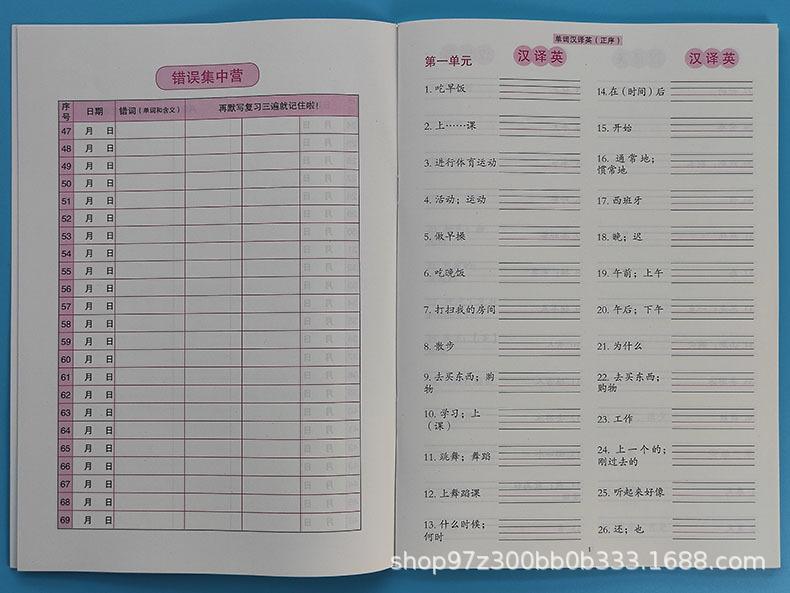 错误集中营
序号 日期 错词（单词和含义） 再默写复习三遍就记住啦！
47 月 日
48 月 日
49 月 日
50 月 日
51 月 日
52 月 日
53 月 日
54 月 日
55 月 日
56 月 日
57 月 日
58 月 日
59 月 日
60 月 日
61 月 日
62 月 日
63 月 日
64 月 日
65 月 日
66 月 日
67 月 日
68 月 日
69 月 日
单词汉译英（正序）
第一单元 汉译英
1. 吃早饭
2. 上……课
3. 进行体育运动
4. 活动；运动
5. 做早操
6. 吃晚饭
7. 打扫我的房间
8. 散步
9. 去买东西；购
物
10. 学习；上
（课）
11. 跳舞；舞蹈
12. 上舞蹈课
13. 什么时候；
何时
汉译英
14. 在（时间）后
15. 开始
16. 通常地；
惯常地
17. 西班牙
18. 晚；迟
19. 午前；上午
20. 午后；下午
21. 为什么
22. 去买东西；
购物
23. 工作
24. 上一个的；
刚过去的
25. 听起来好像
26. 还；也
1
shop97z300bb0b333.1688.com